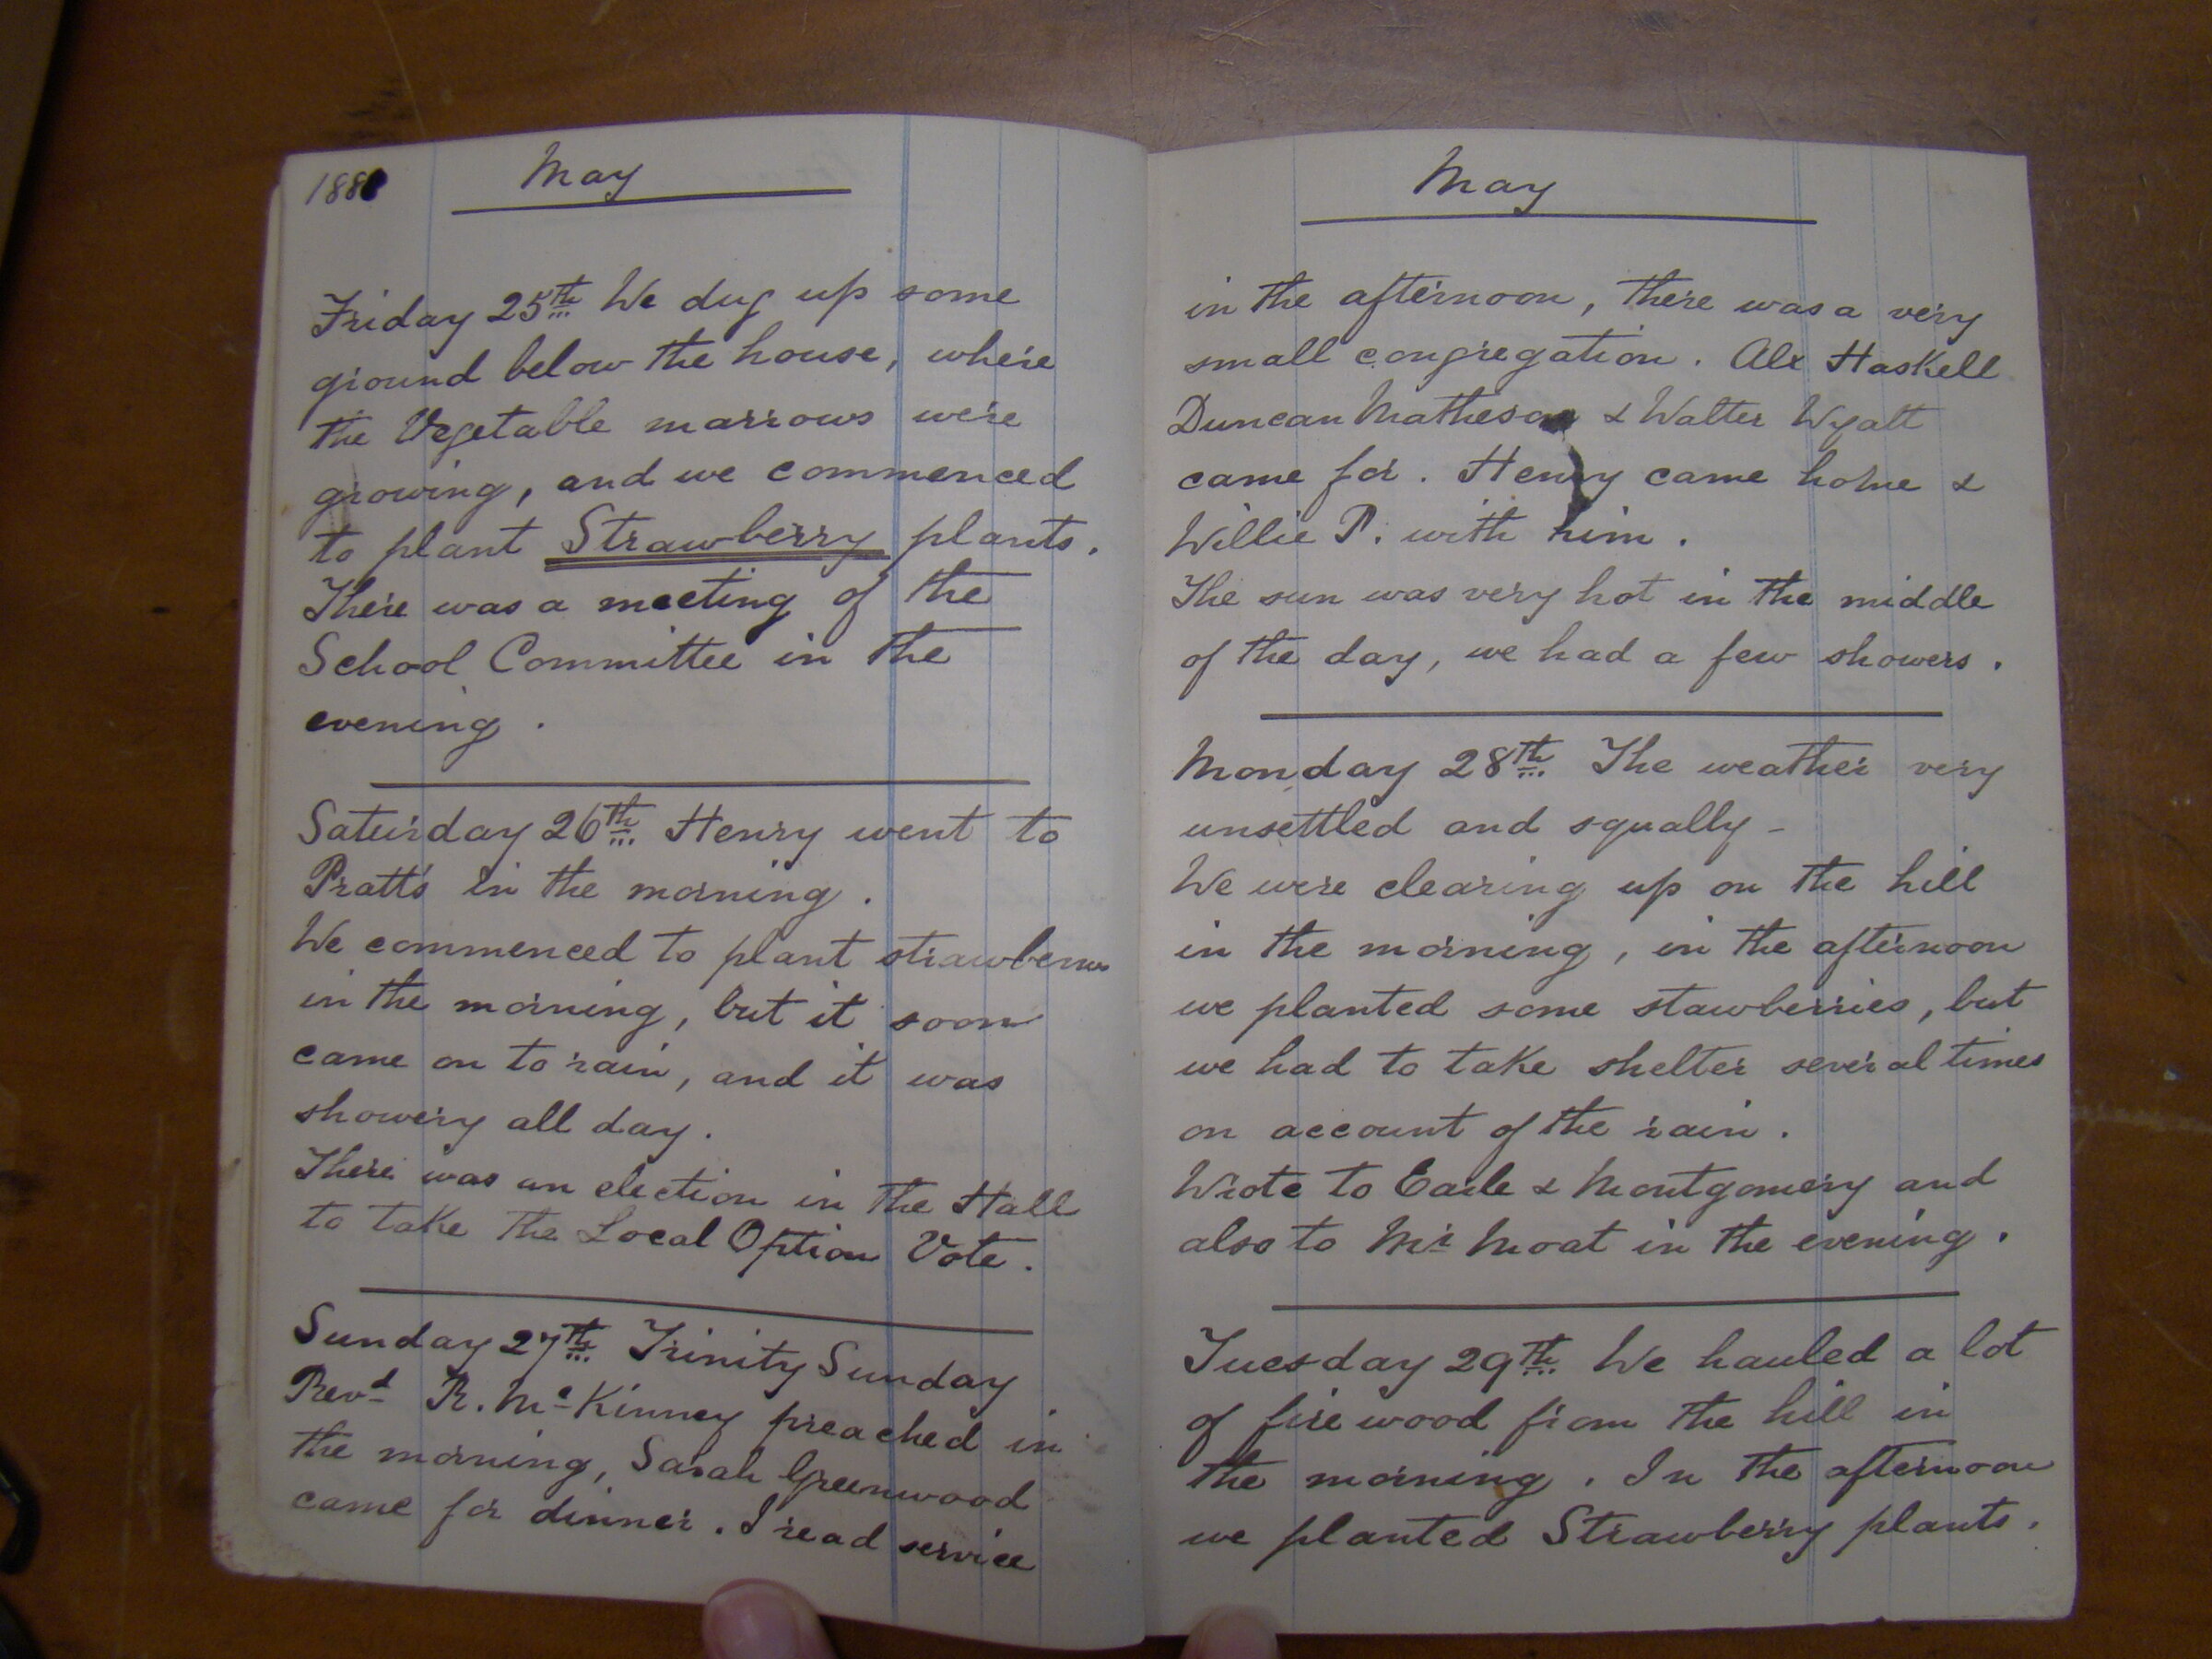 1888 May
Friday 25th We dug up some
ground below the house, where
the Vegetable marrows were
growing, and we commenced
to plant Strawberry plants.
There was a meeting of the
School Committee in the
evening.
Saturday 26th Henry went to
Pratts in the morning.
We commenced to plant strawberries
in the morning, but it soon
came on to rain, and it was
showery all day.
There was an election in the Hall
to take the Local Option Vote.
Sunday 27th Trinity Sunday
Revd R. McKinney preached in
the morning, Sarah Greenwood
came for dinner. I read service
May
in the afternoon, there was a very
small congregation. Alx Haskell
Duncan Matheson & Walter Wyatt
came for. Henry came home &
Willie P. with him.
The sun was very hot in the middle
of the day, we had a few showers.
Monday 28th The weather very
unsettled and squally -
We were clearing up on the hill
in the morning, in the afternoon
we planted some stawberries, but
we had to take shelter several times
on account of the rain.
Wrote to Earle & Montgomery and
also to Mr Moat in the evening.
Tuesday 29th We hauled a lot
of fire wood from the hill in
the morning. In the afternoon
we planted Strawberry plants.